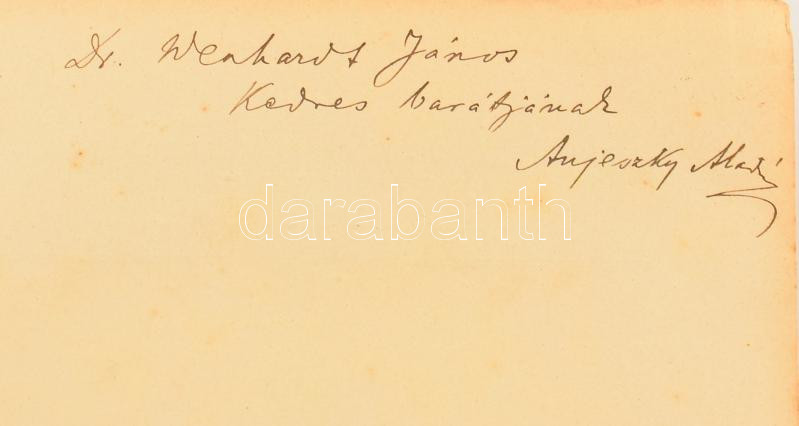 Dr. Wenhardt János
Kedves barátjának
Aujeszky Aladár
darabanth